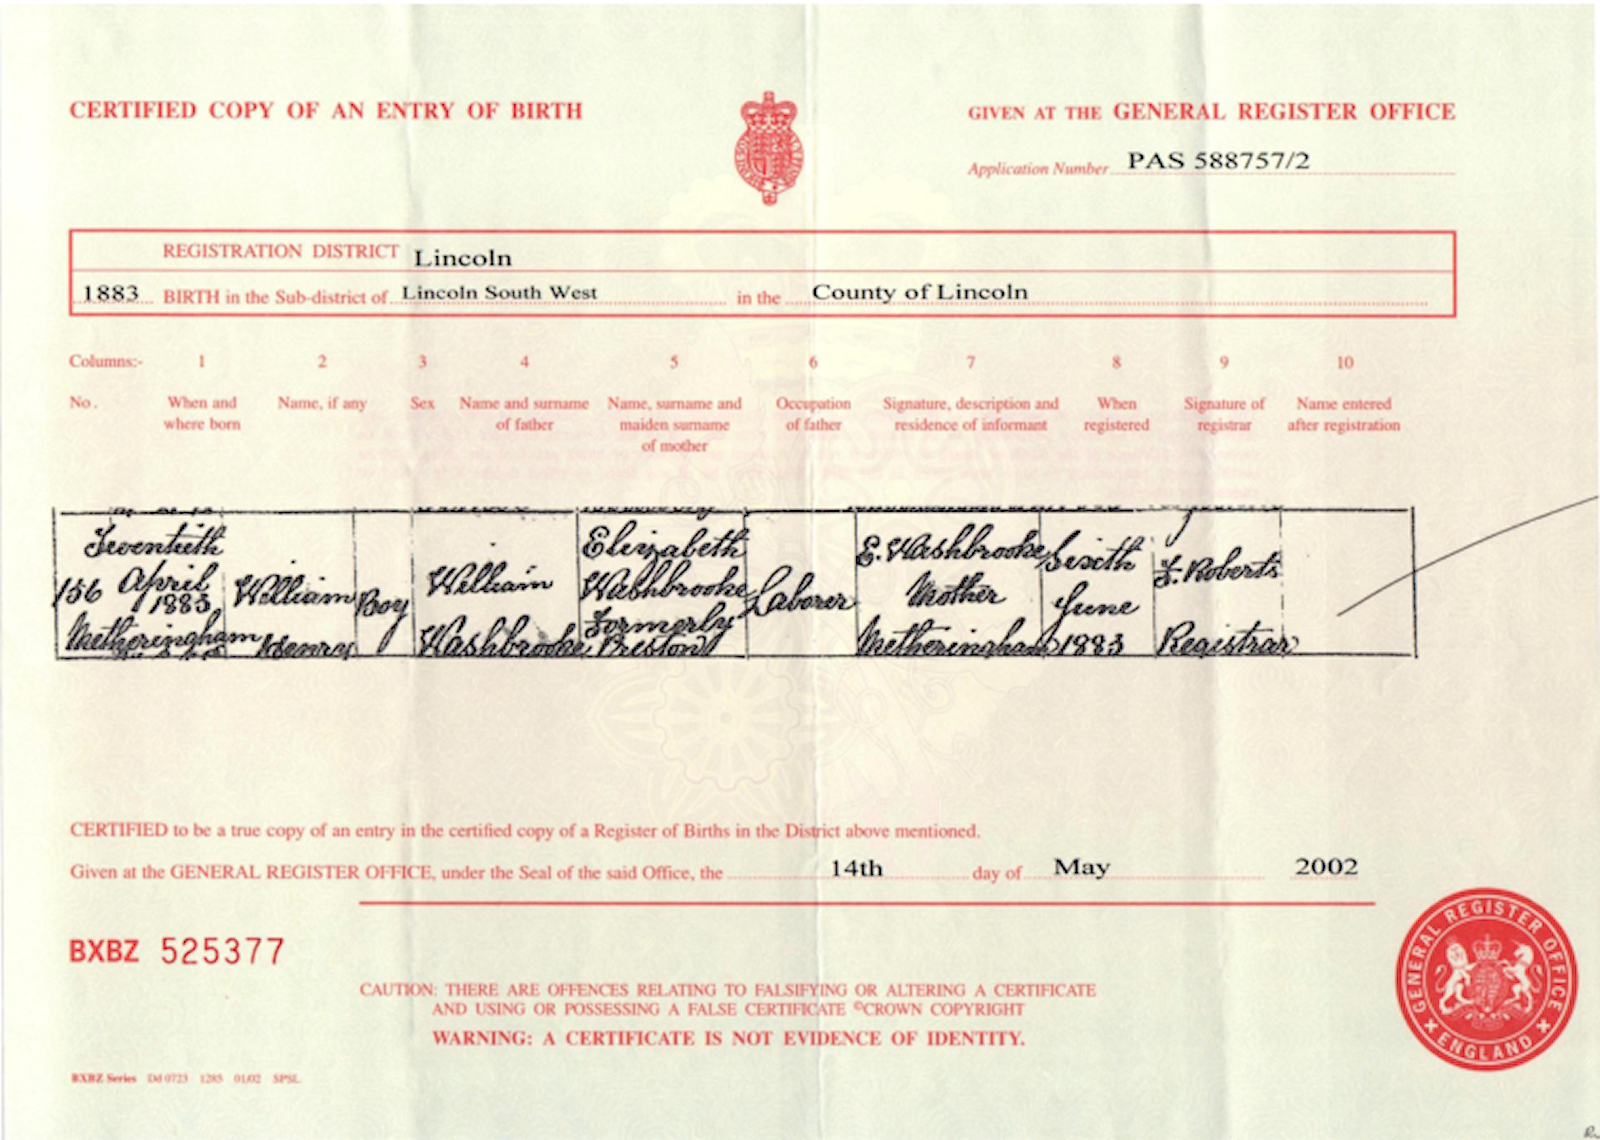 CERTIFIED COPY OF AN ENTRY OF BIRTH
GIVEN AT THE GENERAL REGISTER OFFICE
Application Number PAS 588757/2
REGISTRATION DISTRICT Lincoln
1883 BIRTH in the Sub-district of Lincoln South West in the County of Lincoln
Columns:- 1 2 3 4 5 6 7 8 9 10
No. When and Name, if any Sex Name and surname Name, surname and Occupation Signature, description and When Signature of Name entered
where born of father maiden surname of father residence of informant registered registrar after registration
of mother
Twentieth Elizabeth E. Washbrooke Sixth
156 April William Boy William Washbrooke Laborer Mother June F. Roberts
1883 Formerly
Metheringham Henry Washbrooke Preston Metheringham 1883 Registrar
CERTIFIED to be a true copy of an entry in the certified copy of a Register of Births in the District above mentioned.
Given at the GENERAL REGISTER OFFICE, under the Seal of the said Office, the 14th day of May 2002
BXBZ 525377
CAUTION: THERE ARE OFFENCES RELATING TO FALSIFYING OR ALTERING A CERTIFICATE
AND USING OR POSSESSING A FALSE CERTIFICATE ©CROWN COPYRIGHT
WARNING: A CERTIFICATE IS NOT EVIDENCE OF IDENTITY.
GENERAL REGISTER OFFICE
ENGLAND
BXBZ Series Dd 0723 1285 01/02 SPSL